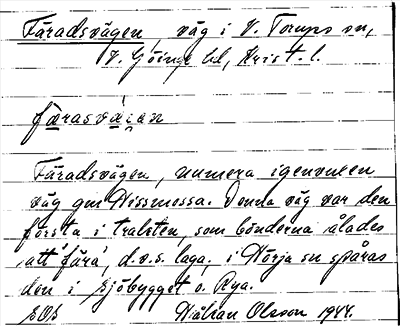 Färadsvägen, väg i V. Torups sn,
V. Göinge hd, Krist. l.
færasvä̀i̯en
Färadsvägen, numera igenvuxen
väg gm Nissmossa. Denna väg var den
första i trakten, som bönderna ålades
att 'fära', d.v.s. laga. i Nörja sn spåras
den i Sjöbygget o. Rya.
Wätran Olsson 1944.